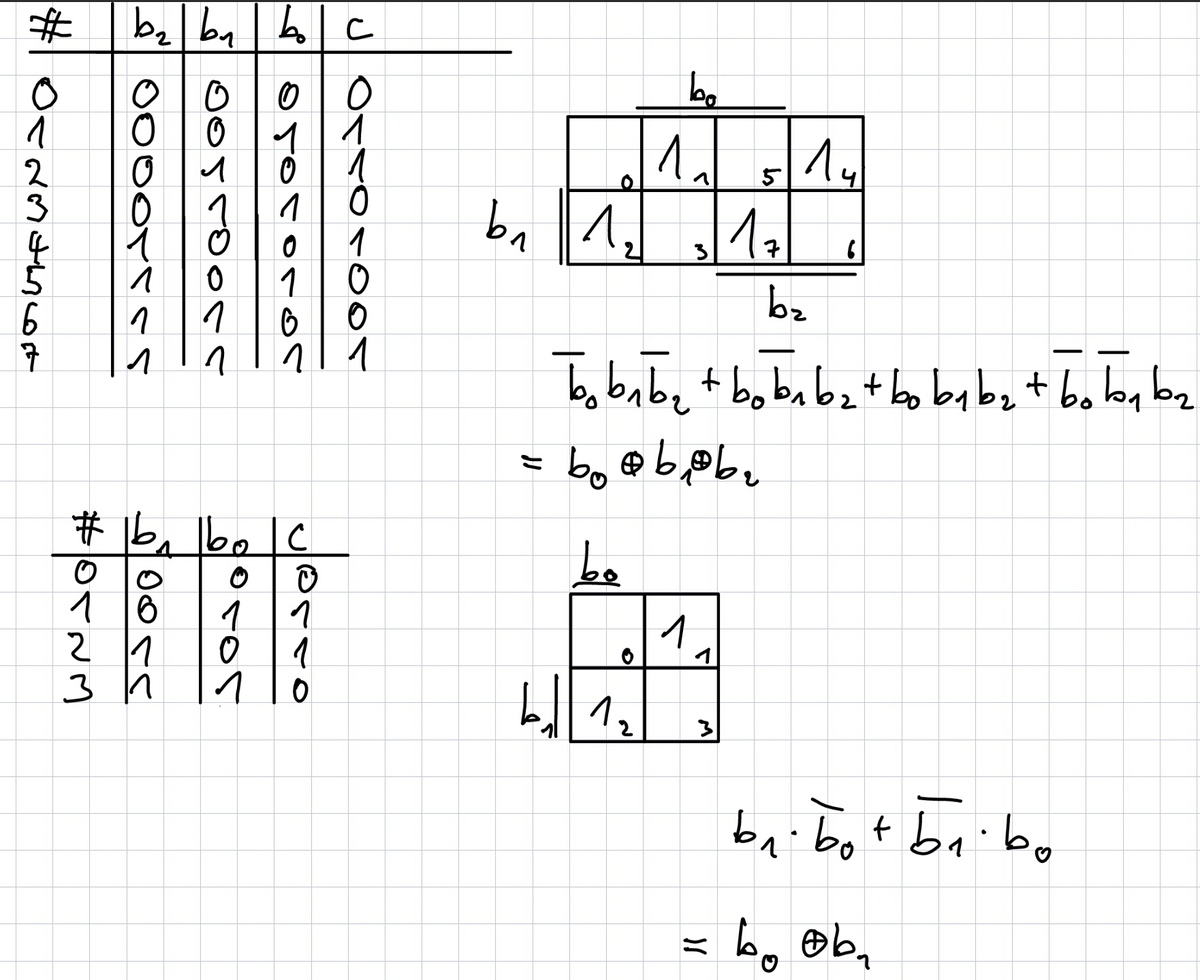 # b₂ b₁ b₀ c
0 0 0 0 0
1 0 0 1 1
2 0 1 0 1
3 0 1 1 0
4 1 0 0 1
5 1 0 1 0
6 1 1 0 0
7 1 1 1 1
b₀
0 1 1 5 1 4
b₁ 1 2 3 1 7 6
b₂
b̅₀ b₁ b̅₂ + b₀ b̅₁ b₂ + b₀ b₁ b₂ + b̅₀ b̅₁ b₂
= b₀ ⊕ b₁ ⊕ b₂
# b₁ b₀ c
0 0 0 0
1 0 1 1
2 1 0 1
3 1 1 0
b₀
0 1 1
b₁ 1 2 3
b₁ · b̅₀ + b̅₁ · b₀
= b₀ ⊕ b₁